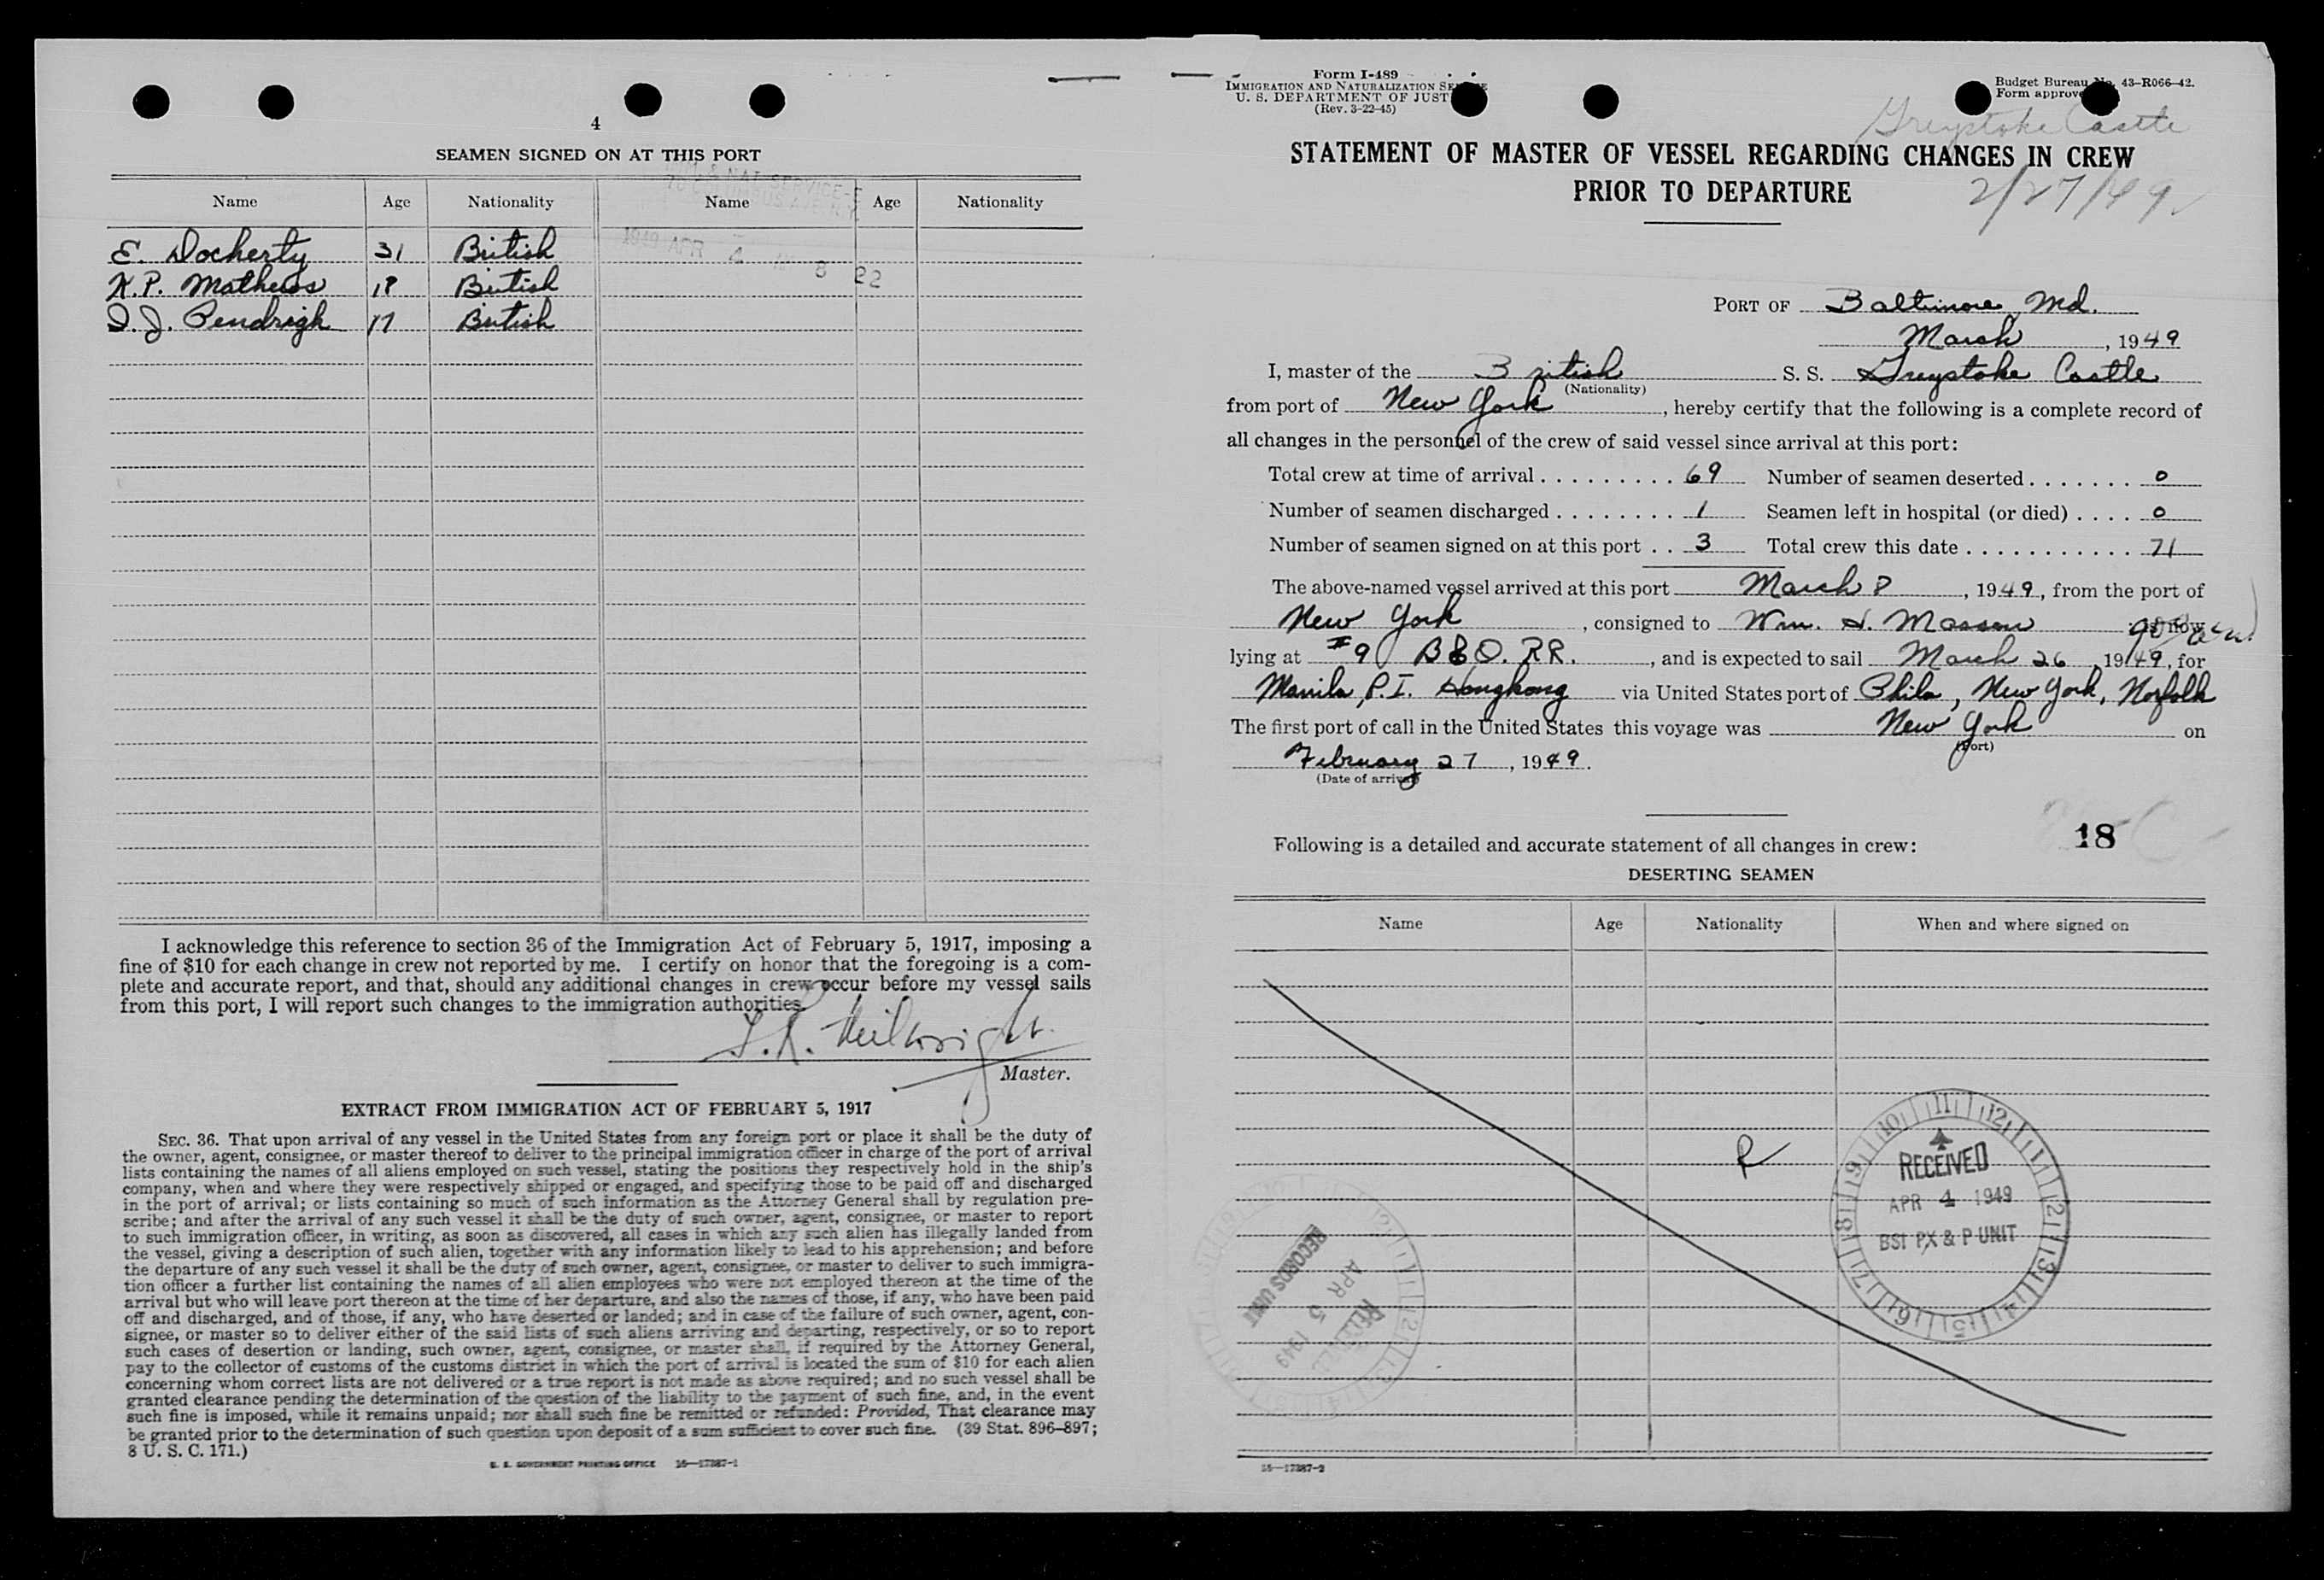 4
SEAMEN SIGNED ON AT THIS PORT
Name Age Nationality Name Age Nationality
E. Docherty 31 British
K.P. Mathews 18 British
D. J. Pendrigh 17 British
1949 APR 4 8 22
I acknowledge this reference to section 36 of the Immigration Act of February 5, 1917, imposing a
fine of $10 for each change in crew not reported by me. I certify on honor that the foregoing is a com-
plete and accurate report, and that, should any additional changes in crew occur before my vessel sails
from this port, I will report such changes to the immigration authorities.
Master.
EXTRACT FROM IMMIGRATION ACT OF FEBRUARY 5, 1917
SEC. 36. That upon arrival of any vessel in the United States from any foreign port or place it shall be the duty of
the owner, agent, consignee, or master thereof to deliver to the principal immigration officer in charge of the port of arrival
lists containing the names of all aliens employed on such vessel, stating the positions they respectively hold in the ship's
company, when and where they were respectively shipped or engaged, and specifying those to be paid off and discharged
in the port of arrival; or lists containing so much of such information as the Attorney General shall by regulation pre-
scribe; and after the arrival of any such vessel it shall be the duty of such owner, agent, consignee, or master to report
to such immigration officer, in writing, as soon as discovered, all cases in which any such alien has illegally landed from
the vessel, giving a description of such alien, together with any information likely to lead to his apprehension; and before
the departure of any such vessel it shall be the duty of such owner, agent, consignee, or master to deliver to such immigra-
tion officer a further list containing the names of all alien employees who were not employed thereon at the time of the
arrival but who will leave port thereon at the time of her departure, and also the names of those, if any, who have been paid
off and discharged, and of those, if any, who have deserted or landed; and in case of the failure of such owner, agent, con-
signee, or master so to deliver either of the said lists of such aliens arriving and departing, respectively, or so to report
such cases of desertion or landing, such owner, agent, consignee, or master shall, if required by the Attorney General,
pay to the collector of customs of the customs district in which the port of arrival is located the sum of $10 for each alien
concerning whom correct lists are not delivered or a true report is not made as above required; and no such vessel shall be
granted clearance pending the determination of the question of the liability to the payment of such fine, and, in the event
such fine is imposed, while it remains unpaid; nor shall such fine be remitted or refunded: Provided, That clearance may
be granted prior to the determination of such question upon deposit of a sum sufficient to cover such fine. (39 Stat. 896-897;
8 U. S. C. 171.)
U. S. GOVERNMENT PRINTING OFFICE 16—17387-1
Form I-489
IMMIGRATION AND NATURALIZATION
U. S. DEPARTMENT OF JUST
(Rev. 3-22-45)
Budget Bureau No. 43-R066-42.
Form approve
Greystoke Castle
STATEMENT OF MASTER OF VESSEL REGARDING CHANGES IN CREW
PRIOR TO DEPARTURE
2/27/49
PORT OF Baltimore, Md.
March, 1949
I, master of the British S. S. Greystoke Castle
(Nationality)
from port of New York, hereby certify that the following is a complete record of
all changes in the personnel of the crew of said vessel since arrival at this port:
Total crew at time of arrival 69 Number of seamen deserted 0
Number of seamen discharged 1 Seamen left in hospital (or died) 0
Number of seamen signed on at this port 3 Total crew this date 71
The above-named vessel arrived at this port March 8, 1949, from the port of
New York, consigned to Wm. H. Masson
lying at #9 B&O. RR., and is expected to sail March 26, 1949, for
Manila, P.I. Hongkong via United States port of Phila, New York, Norfolk
The first port of call in the United States this voyage was New York on
(Port)
February 27, 1949.
(Date of arrival)
18
Following is a detailed and accurate statement of all changes in crew:
DESERTING SEAMEN
Name Age Nationality When and where signed on
RECEIVED
APR 4 1949
BSI PX & P UNIT
RECORDS UNIT
APR 5 1949
RECEIVED
16—17387-2